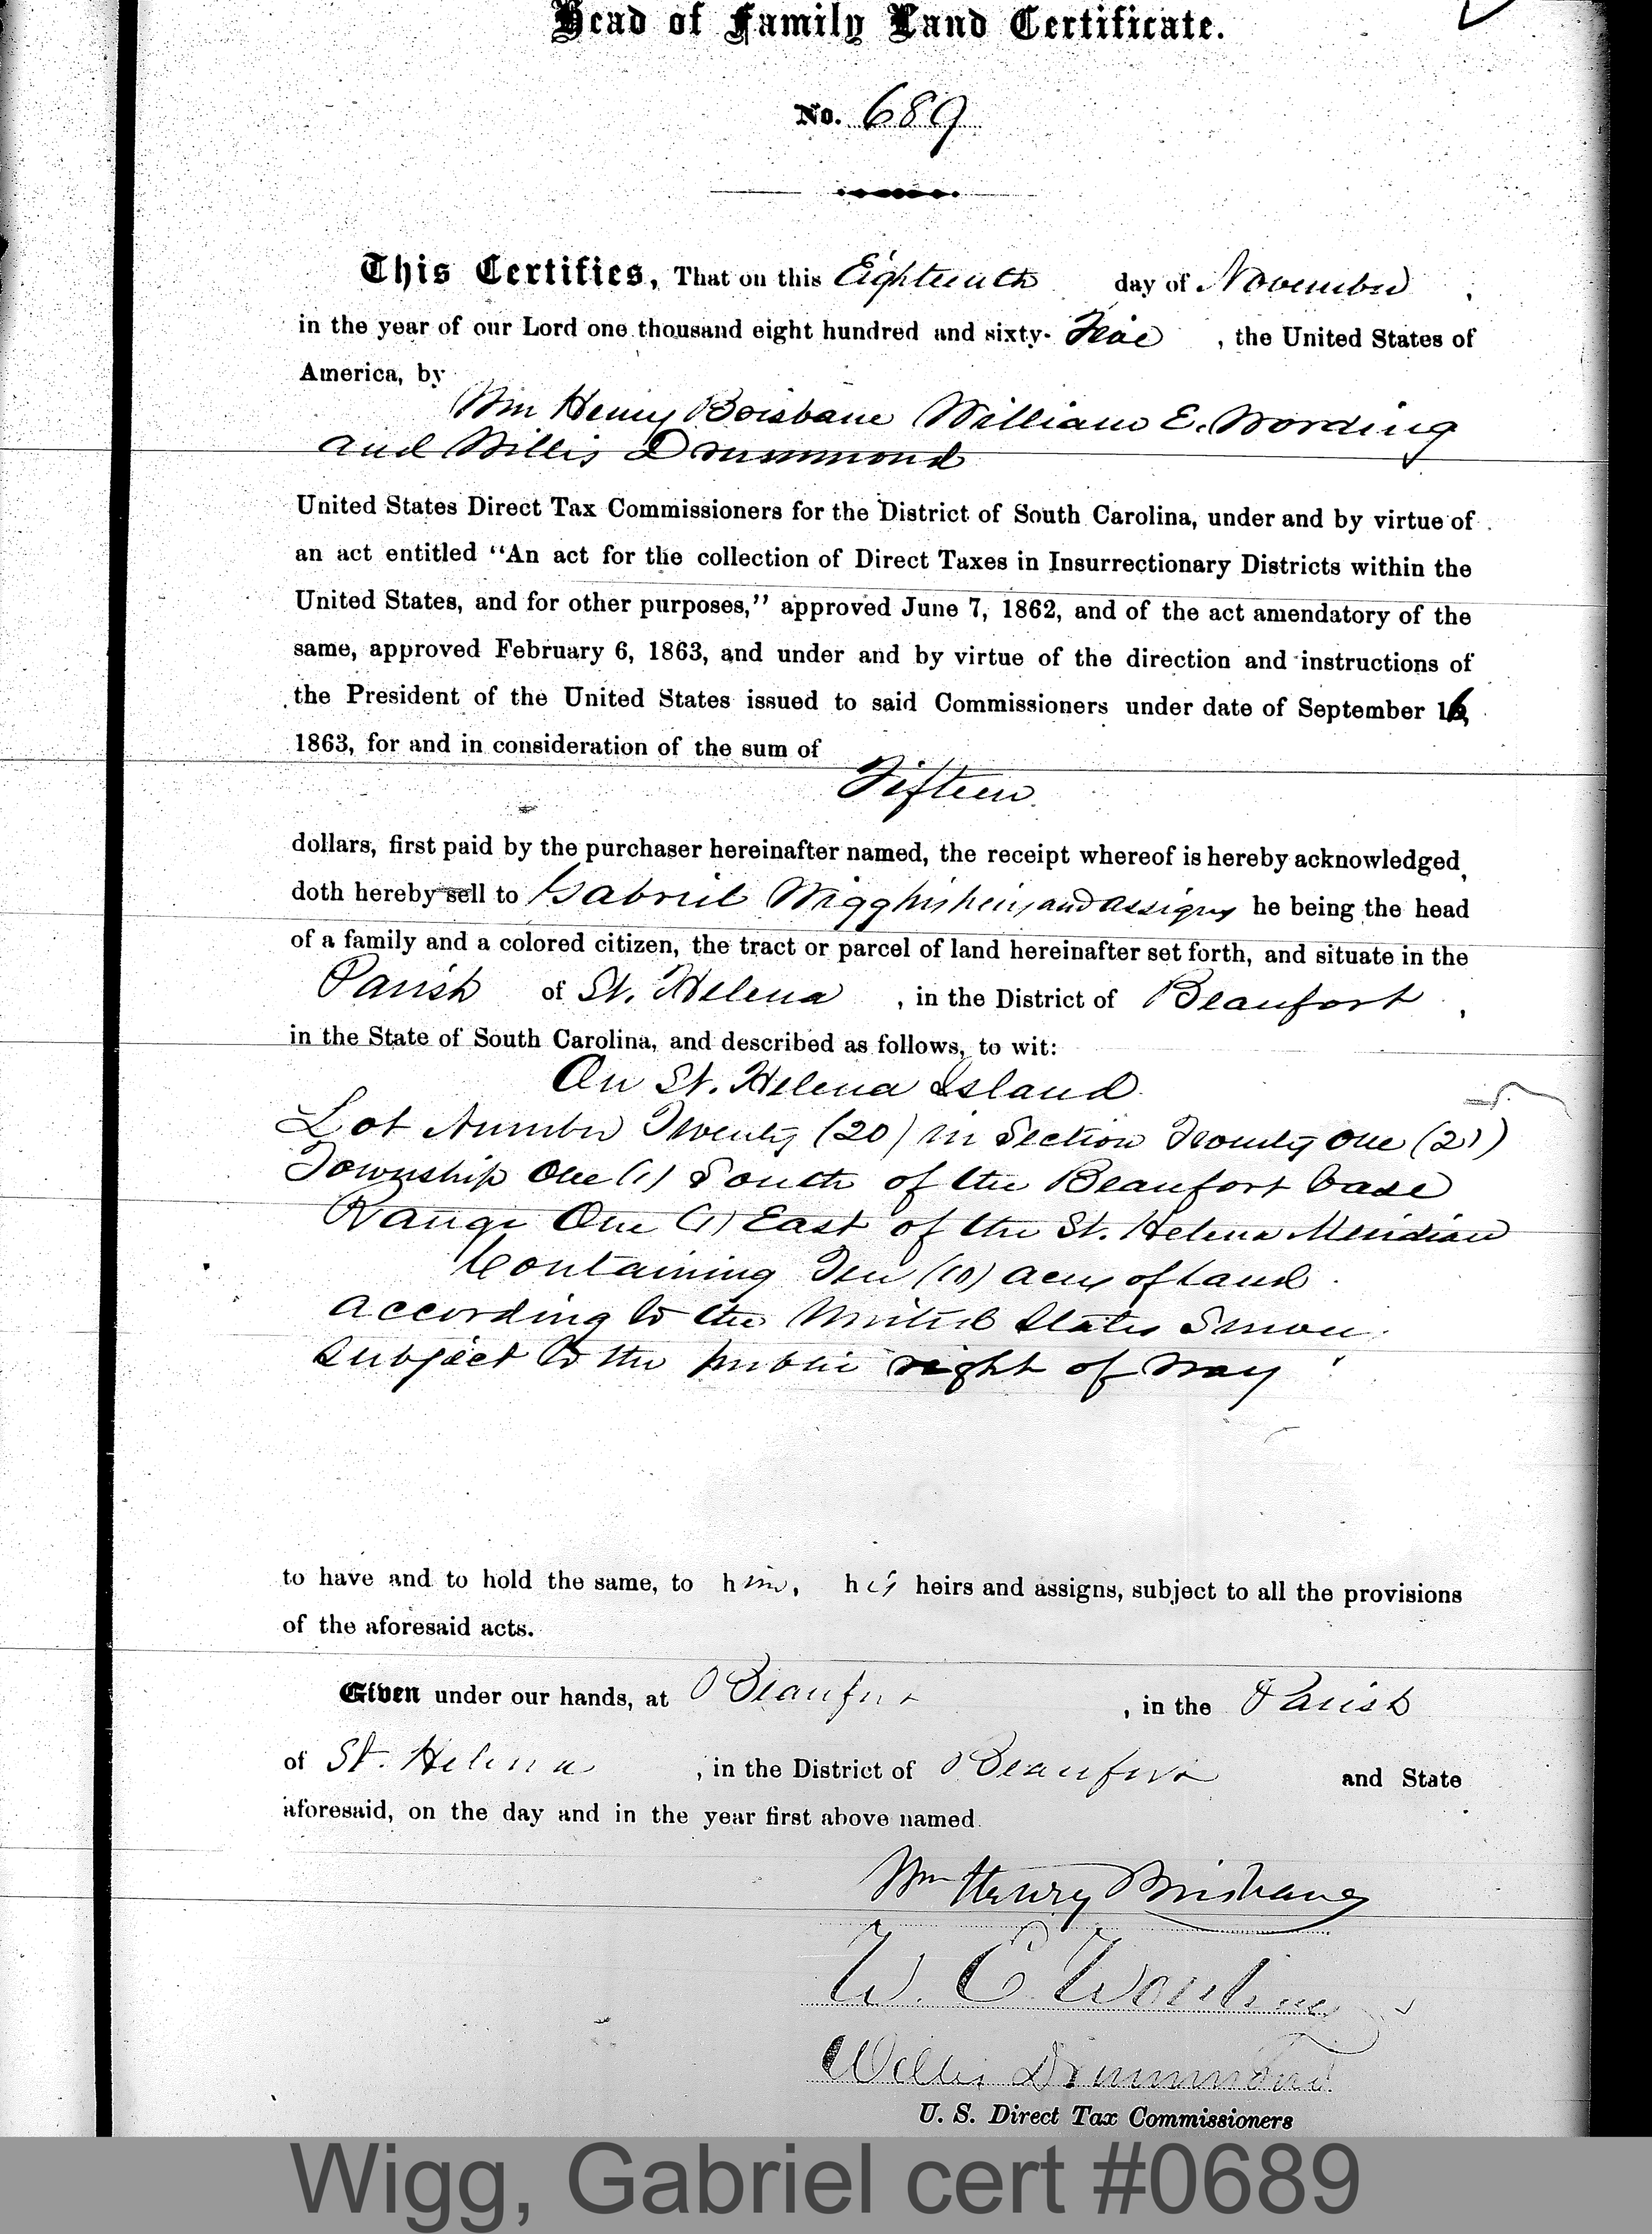 Head of Family Land Certificate.
No. 689
This Certifies, That on this Eighteenth day of November,
in the year of our Lord one thousand eight hundred and sixty-Five, the United States of
America, by
Wm Henry Brisbane William E. Wording
and Willis Drummond
United States Direct Tax Commissioners for the District of South Carolina, under and by virtue of
an act entitled "An act for the collection of Direct Taxes in Insurrectionary Districts within the
United States, and for other purposes," approved June 7, 1862, and of the act amendatory of the
same, approved February 6, 1863, and under and by virtue of the direction and instructions of
the President of the United States issued to said Commissioners under date of September 16,
1863, for and in consideration of the sum of
Fifteen
dollars, first paid by the purchaser hereinafter named, the receipt whereof is hereby acknowledged,
doth hereby sell to Gabriel Wigg his heirs and assigns he being the head
of a family and a colored citizen, the tract or parcel of land hereinafter set forth, and situate in the
Parish of St. Helena, in the District of Beaufort,
in the State of South Carolina, and described as follows, to wit:
On St. Helena Island
Lot Number Twenty (20) in Section Twenty One (21)
Township One (1) South of the Beaufort base
Range One (1) East of the St. Helena Meridian
Containing Ten (10) acres of land
according to the United States Survey.
Subject to the public right of way
to have and to hold the same, to him, his heirs and assigns, subject to all the provisions
of the aforesaid acts.
Given under our hands, at Beaufort, in the Parish
of St. Helena, in the District of Beaufort and State
aforesaid, on the day and in the year first above named.
Wm Henry Brisbane
W. E. Wording
Willis Drummond
U. S. Direct Tax Commissioners
Wigg, Gabriel cert #0689